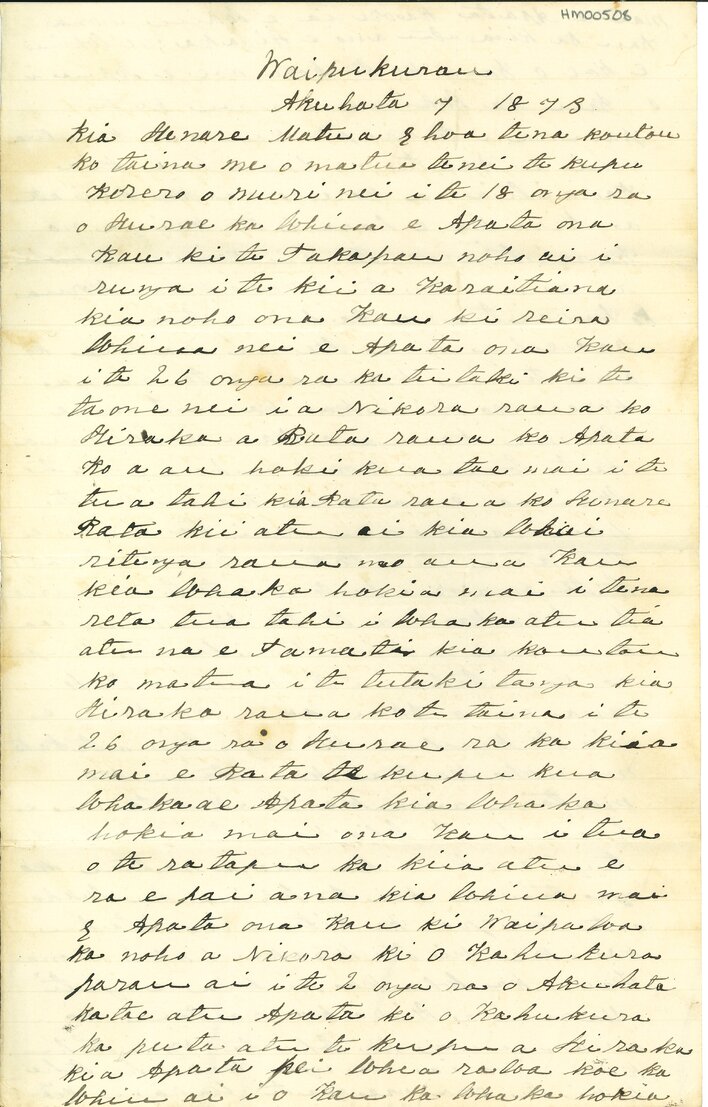 HM00508
Waipukurau
Akuhata 7 1873
Kia Henare Matua E hoa tena koutou
ko taina me o matua tenei te kupu
Korero o muri nei i te 18 onga ra
o Hurae ka Whiua e Apata ona
Kau ki te Takapau noho ai i
runga i te kii a Karaitiana
kia noho ona Kau ki reira
Whiua nei e Apata ona Kau
i te 26 onga ra ka tutaki ki te
taone nei i a Nikora raua ko
Hiraka a Rata raua ko Apata
Ko a au hoki kua tae mai i te
tua tahi kia Rata raua ko Henare
Rata kii atu ai kia Whai
ritenga raua mo aua Kau
kia Whaka hokia mai i tena
reta tua tahi i Whaka atu tia
atu na e Tamati kia koutou
ko matua i te tutaki tanga kia
Hiraka raua ko te taina i te
26 onga ra o Hurae ra ka kiia
mai e Rata te kupu kua
Whakaae Apata kia Whaka
hokia mai ona Kau i tua
o te ratapu ka kiia atu e
ra e pai ana kia Whiua mai
E Apata ona Kau ki Waipawa
ka noho a Nikora ki O Kahukura
parau ai i te 2 onga ra o Akuhata
ka tae atu Apata ki o Kahukura
ka puta atu te kupu a Hiraka
kia Apata kei Whea rawa koe ka
Whiu ai i o Kau ka Whaka hokia